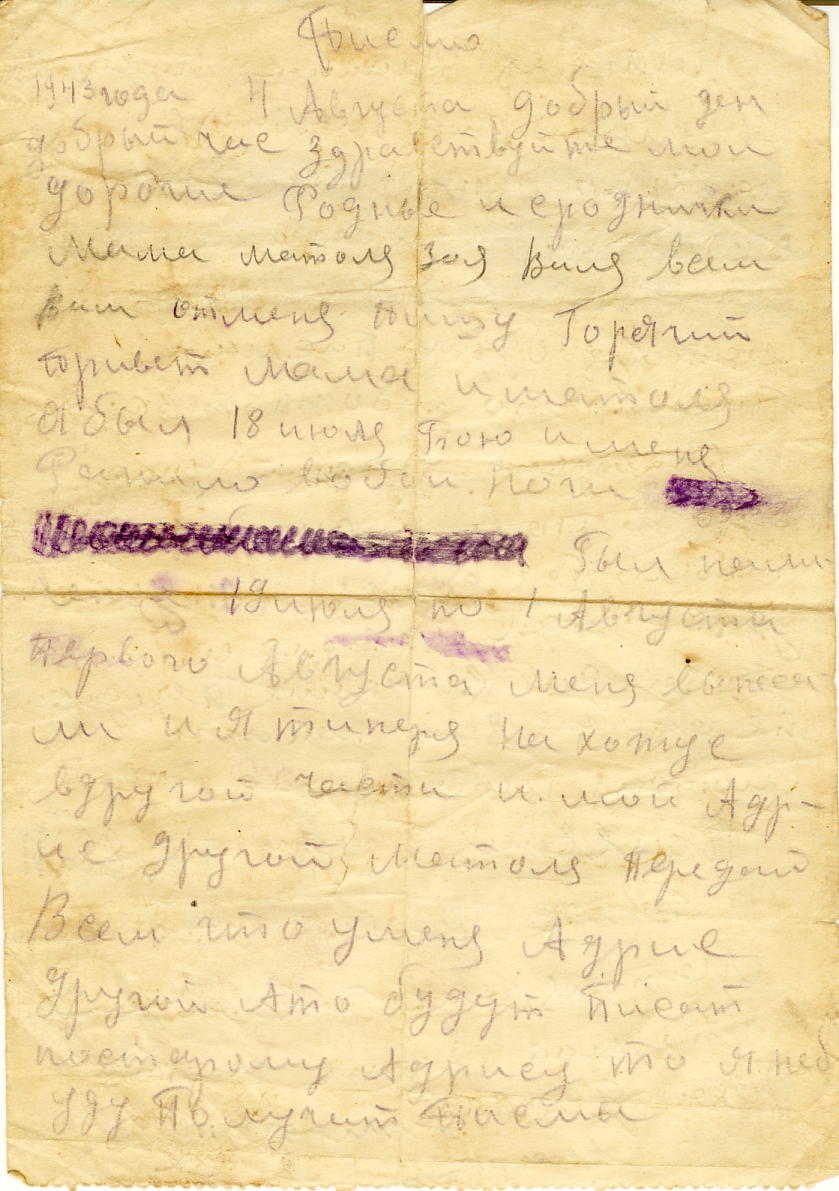 Писмо
1943 года 4 Августа добрый ден
добрый час здравствуйте мои
дорогие Родные и сроднички
Мама матоля Зоя Валя всем
Вам отменя пишу Горячий
привет мама и матоля
Я был 18 июля Бою и меня
Ранило вобои ноги
Был
19 июля по 1 Августа
Первого Августа меня выписа-
ли и я типеря на хожус
вдругой части и мой Адр-
ис другой матоля передай
Всем что уменя Адрис
другой Ато будут писат
постарому Адрису то я неб
уду Получит писмы